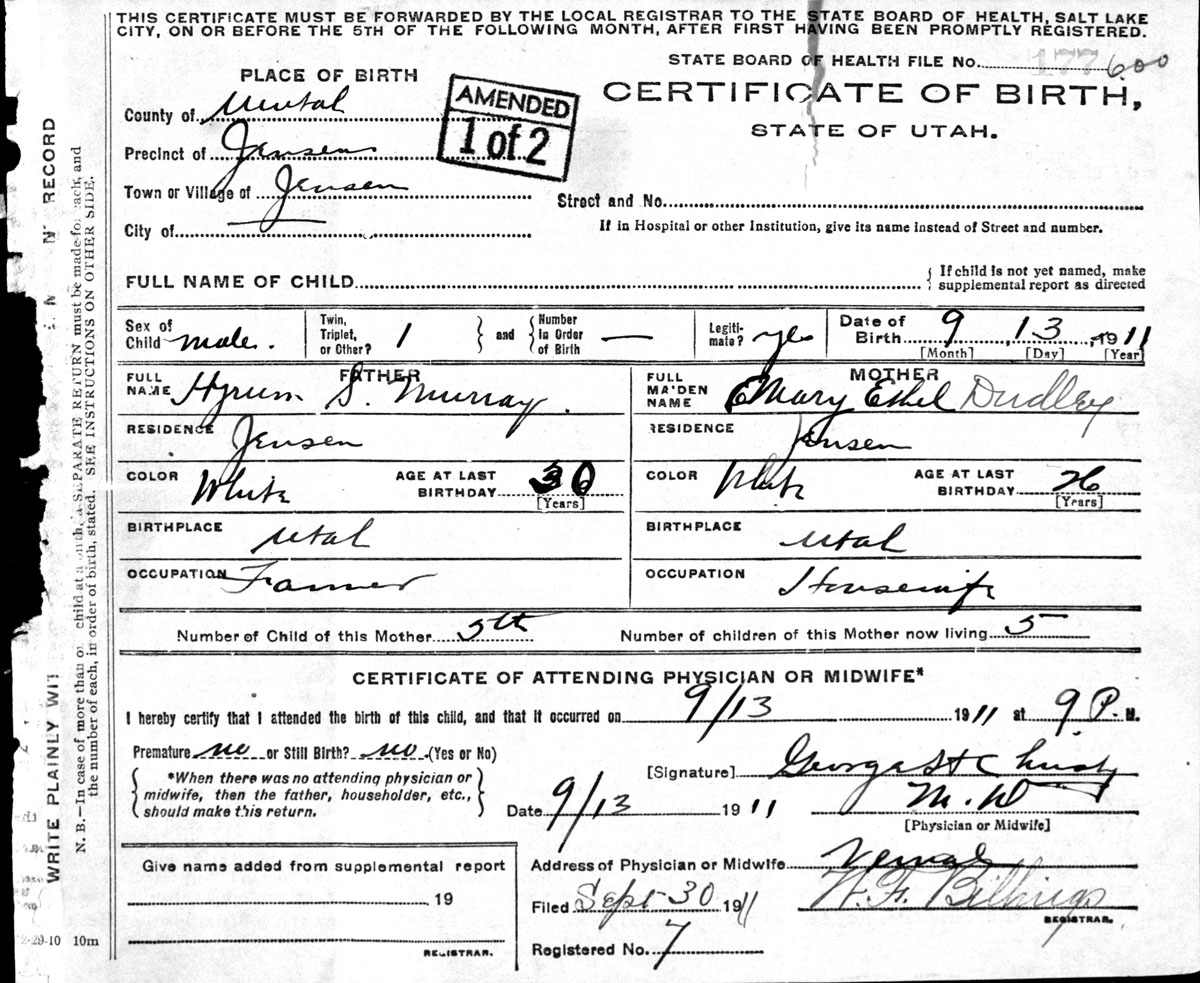 THIS CERTIFICATE MUST BE FORWARDED BY THE LOCAL REGISTRAR TO THE STATE BOARD OF HEALTH, SALT LAKE
CITY, ON OR BEFORE THE 5TH OF THE FOLLOWING MONTH, AFTER FIRST HAVING BEEN PROMPTLY REGISTERED.
STATE BOARD OF HEALTH FILE No. 177 600
PLACE OF BIRTH
AMENDED
1 of 2
CERTIFICATE OF BIRTH,
STATE OF UTAH.
County of
Precinct of Jensen
Town or Village of Jensen
Street and No.
City of
If in Hospital or other Institution, give its name instead of Street and number.
FULL NAME OF CHILD
{ If child is not yet named, make
supplemental report as directed
Sex of Child male. Twin, Triplet, or Other? 1 } and { Number In Order of Birth — Legiti-mate? yes Date of Birth 9, 13, 1911
[Month] [Day] [Year]
FATHER MOTHER
FULL NAME Hyrum S. Murray. FULL MAIDEN NAME Mary Ethel Dudley
RESIDENCE Jensen RESIDENCE Jensen
COLOR White AGE AT LAST BIRTHDAY 30 [Years] COLOR White AGE AT LAST BIRTHDAY 26 [Years]
BIRTHPLACE Utah BIRTHPLACE Utah
OCCUPATION Farmer OCCUPATION Housewife
Number of Child of this Mother 5th Number of children of this Mother now living 5
CERTIFICATE OF ATTENDING PHYSICIAN OR MIDWIFE*
I hereby certify that I attended the birth of this child, and that it occurred on 9/13 1911 at 9 P. M.
Premature no or Still Birth? no (Yes or No)
{ *When there was no attending physician or
midwife, then the father, householder, etc.,
should make this return. }
[Signature]
Date 9/13 1911
M.D
[Physician or Midwife]
Give name added from supplemental report
19
REGISTRAR.
Address of Physician or Midwife Vernal
Filed Sept-30 1911 W. F. Billings
REGISTRAR.
Registered No. 7
WRITE PLAINLY WIT N RECORD
N. B.—In case of more than child at a SEPARATE RETURN must be made for each, and
the number of each, in order of birth, stated. SEE INSTRUCTIONS ON OTHER SIDE.
2-29-10 10m